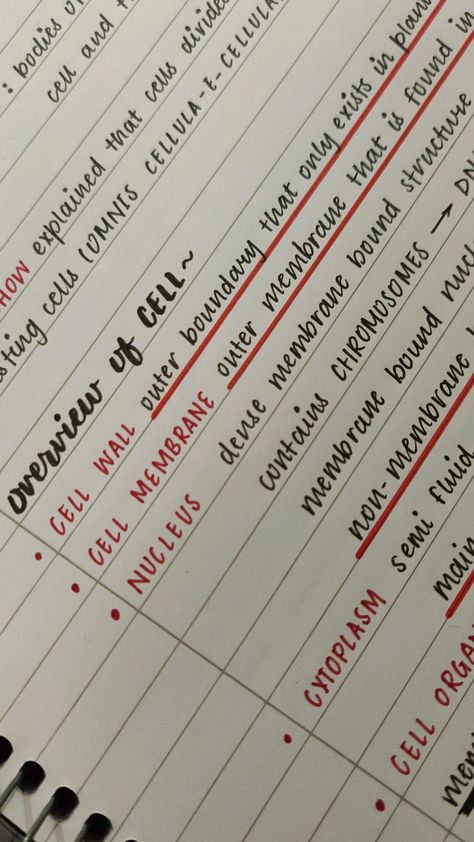 : bodies of
cell and
HOW explained that cells divided
cells (OMNIS CELLULA-E-CELLULA
overview of CELL~
• CELL WALL outer boundary that only exists in plan
• CELL MEMBRANE outer membrane that is found in
• NUCLEUS dense membrane bound structure
contains CHROMOSOMES → DN
membrane bound nucl
non-membrane
• CYTOPLASM semi fluid
main
• CELL ORGAN
mem